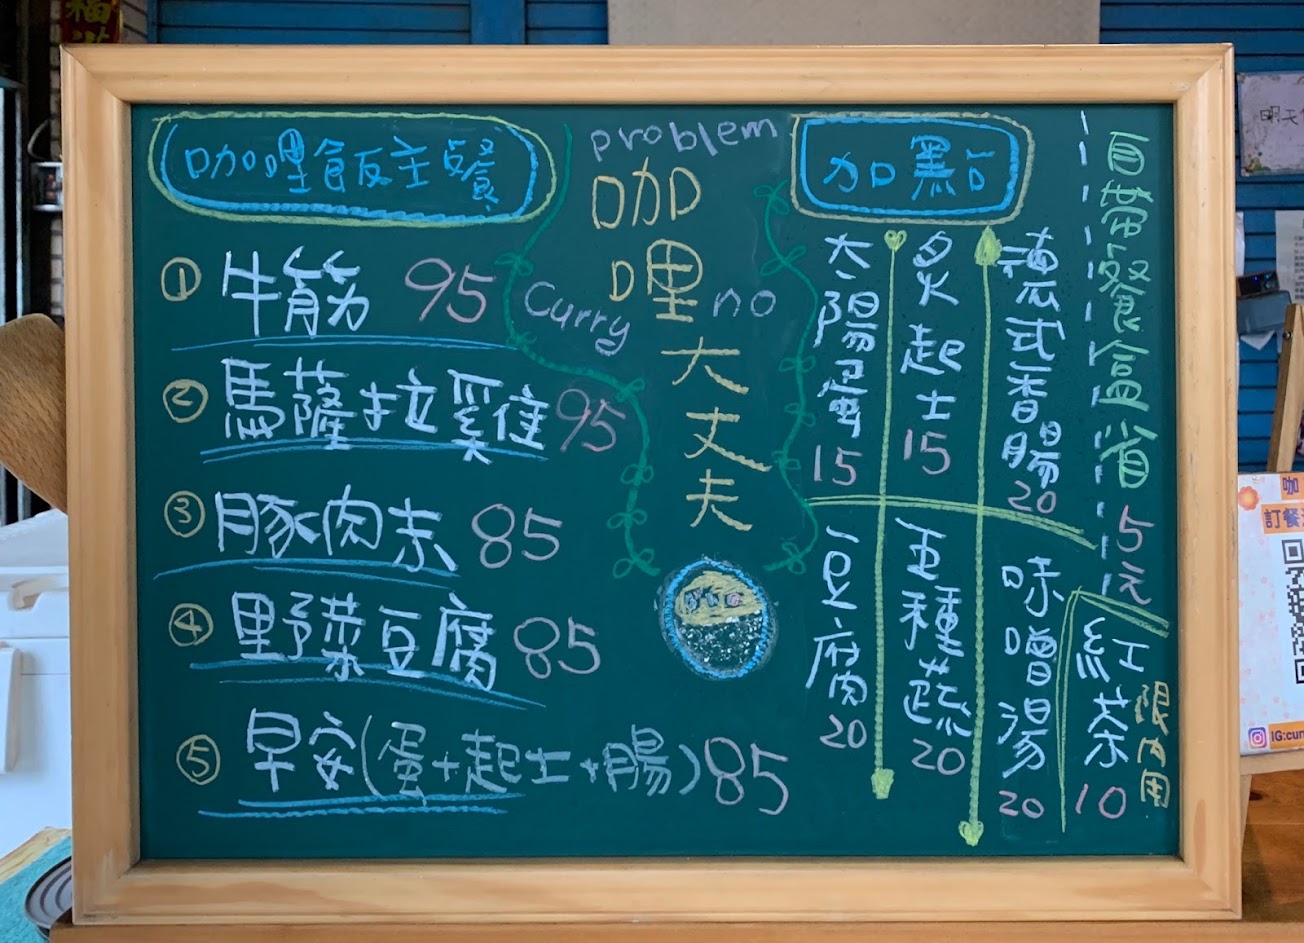 咖哩飯主餐
① 牛筋 95
② 馬薩拉雞 95
③ 豚肉末 85
④ 野菜豆腐 85
⑤ 早安(蛋+起士+腸) 85
problem
咖哩大丈夫
Curry
no
加點
太陽蛋 15
炙起士 15
德式香腸 20
豆腐 20
五種蔬 20
味噌湯 20
紅茶 10
限內用
自帶餐盒省5元
明天
咖
訂餐
IG:cur